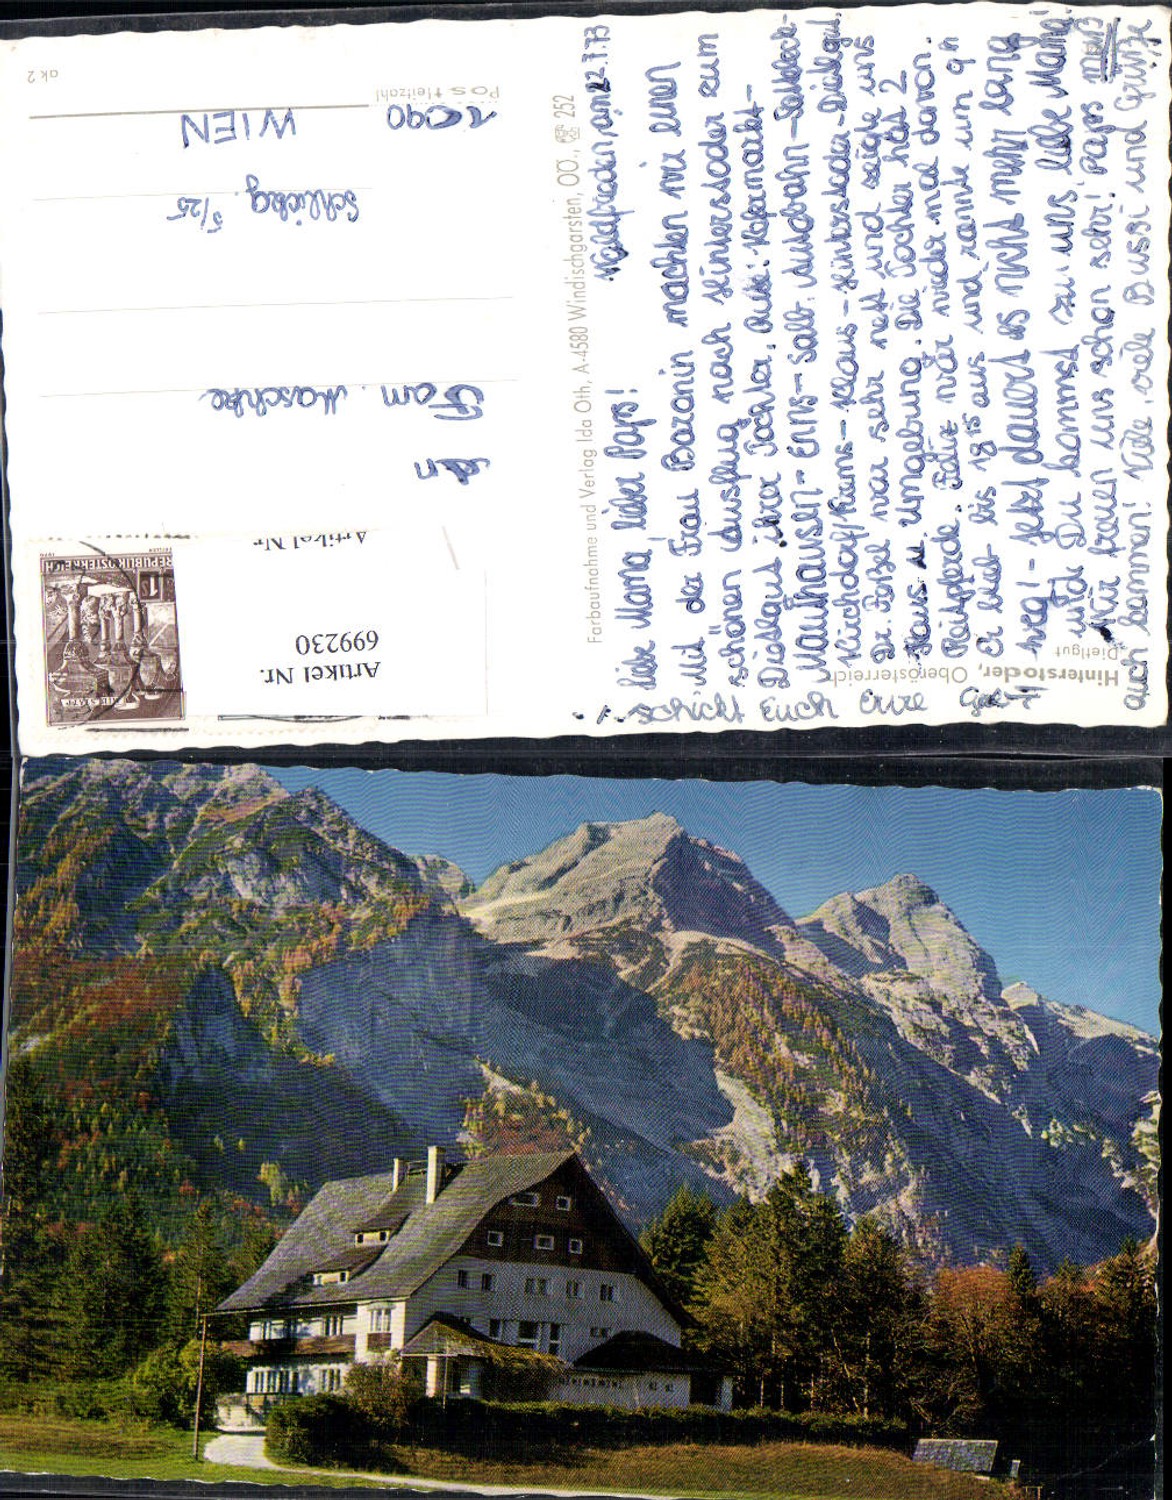 Hinterstoder, Oberösterreich
Dietlgut
Waldfrieden, am 22.7.73
Liebe Mama, lieber Paps!
Mit der Frau Baronin machten wir einen
schönen Ausflug nach Hinterstoder zum
Dietlgut ihrer Tochter. Route: Kefermarkt-
Mauthausen - Enns - Salb. Autobahn - Sattledt-
Kirchdorf/Krems - Klaus - Hinterstoder - Dietlgut.
Dr. war sehr nett und zeigte uns
Haus u. Umgebung. Die Tochter hat 2
Reitpferde. Felix wär nieder mal davon.
Er blieb bis 18 15 aus und rannte um 9 h
weg! - Jetzt dauert es nicht mehr lang
und Du kommst zu uns liebe Mama!
Wir freuen uns schon sehr! Paps muß
auch kommen! Viele, viele Bussi und Grüße
schickt Euch Eure
Farbaufnahme und Verlag Ida Oth, A-4580 Windischgarsten, OÖ., 252
REPUBLIK ÖSTERREICH
1
Artikel Nr.
699230
Artikel Nr.
An
Fam. Maschke
Schlickg. 5/25
1090 WIEN
Postleitzahl
ak 2